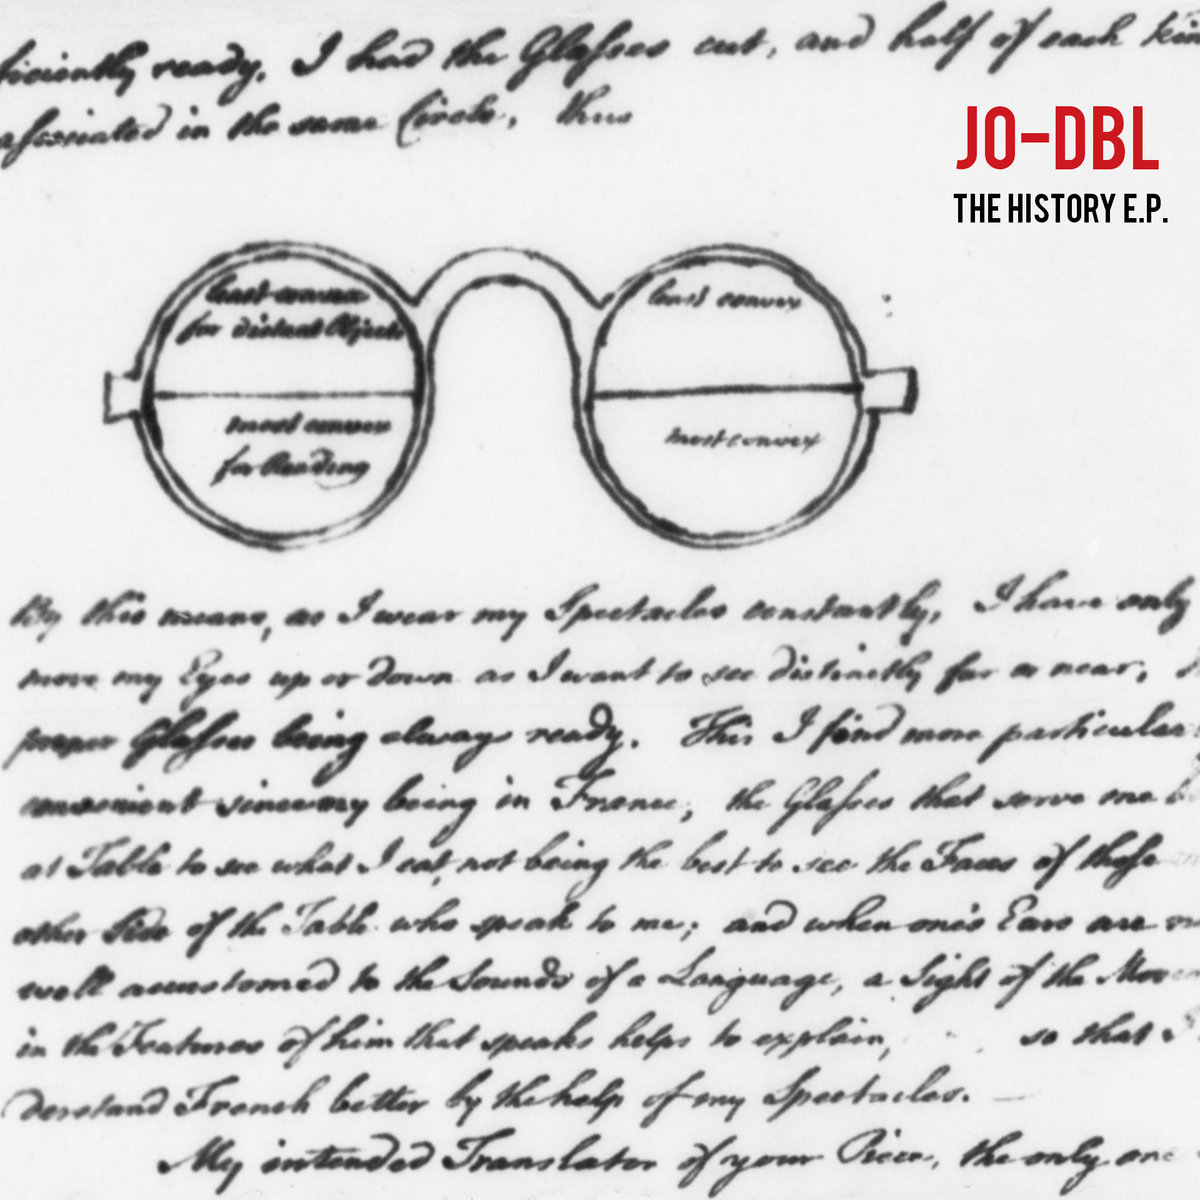 ficiently ready, I had the Glasses cut, and half of each kin
associated in the same Circle, thus
JO-DBL
THE HISTORY E.P.
least convex
for distant Objects
least convex
most convex
for Reading
most convex
By this means, as I wear my Spectacles constantly, I have only
move my Eyes up or down as I want to see distinctly far or near,
proper Glasses being always ready. This I find more particular
convenient since my being in France, the Glasses that serve me b
at Table to see what I eat, not being the best to see the Faces of those
other Side of the Table who speak to me; and when one's Ears are
well accustomed to the Sounds of a Language, a Sight of the Mov
in the Features of him that speaks helps to explain, so that I
derstand French better by the help of my Spectacles.
My intended Translator of your Piece, the only one